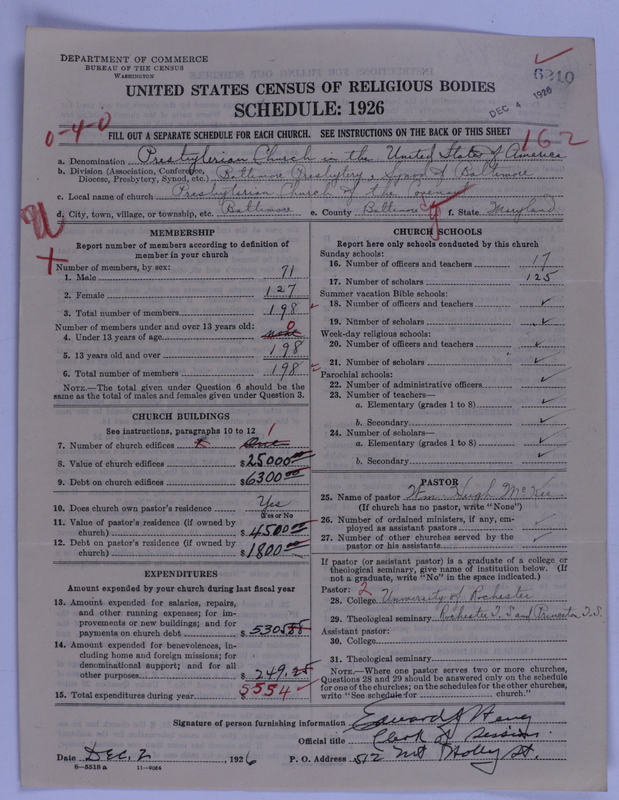 DEPARTMENT OF COMMERCE
BUREAU OF THE CENSUS
WASHINGTON
6210
DEC 4 1926
UNITED STATES CENSUS OF RELIGIOUS BODIES
SCHEDULE: 1926
0-4-0
FILL OUT A SEPARATE SCHEDULE FOR EACH CHURCH. SEE INSTRUCTIONS ON THE BACK OF THIS SHEET
162
a. Denomination Presbyterian Church in the United States of America
b. Division (Association, Conference, Diocese, Presbytery, Synod, etc.) Baltimore Presbytery, Synod of Baltimore
c. Local name of church Presbyterian Church of the Covenant
d. City, town, village, or township, etc. Baltimore e. County Baltimore f. State Maryland
MEMBERSHIP
Report number of members according to definition of
member in your church
Number of members, by sex:
1. Male 71
2. Female 127
3. Total number of members 198
Number of members under and over 13 years old:
4. Under 13 years of age none 0
5. 13 years old and over 198
6. Total number of members 198
NOTE.—The total given under Question 6 should be
same as the total of males and females given under Question 3.
CHURCH BUILDINGS
See instructions, paragraphs 10 to 12
7. Number of church edifices One 1
8. Value of church edifices $25000.00
9. Debt on church edifices $6300.00
10. Does church own pastor's residence Yes
(Yes or No)
11. Value of pastor's residence (if owned by
church) $4500.00
12. Debt on pastor's residence (if owned by
church) $1800.00
EXPENDITURES
Amount expended by your church during last fiscal year
13. Amount expended for salaries, repairs,
and other running expenses; for im-
provements or new buildings; and for
payments on church debt $5305.
14. Amount expended for benevolences, in-
cluding home and foreign missions; for
denominational support; and for all
other purposes $249.25
15. Total expenditures during year $5554
CHURCH SCHOOLS
Report here only schools conducted by this church
Sunday schools:
16. Number of officers and teachers 17
17. Number of scholars 125
Summer vacation Bible schools:
18. Number of officers and teachers ✓
19. Number of scholars ✓
Week-day religious schools:
20. Number of officers and teachers ✓
21. Number of scholars ✓
Parochial schools:
22. Number of administrative officers ✓
23. Number of teachers—
a. Elementary (grades 1 to 8) ✓
b. Secondary ✓
24. Number of scholars—
a. Elementary (grades 1 to 8) ✓
b. Secondary ✓
PASTOR
25. Name of pastor Wm Hugh McKee
(If church has no pastor, write "None")
26. Number of ordained ministers, if any, em-
ployed as assistant pastors ✓
27. Number of other churches served by the
pastor or his assistants ✓
If pastor (or assistant pastor) is a graduate of a college or
theological seminary, give name of institution below. (If
not a graduate, write "No" in the space indicated.)
Pastor: 2
28. College University of Rochester
29. Theological seminary Rochester T. S and Princeton T.S.
Assistant pastor:
30. College
31. Theological seminary
NOTE.—Where one pastor serves two or more churches,
Questions 28 and 29 should be answered only on the schedule
for one of the churches; on the schedules for the other churches,
write "See schedule for church."
Signature of person furnishing information Edward
Official title Clerk of Session.
Date Dec. 2, 1926 P. O. Address 512 Mt Holly St.
8-5518 a 11-9064